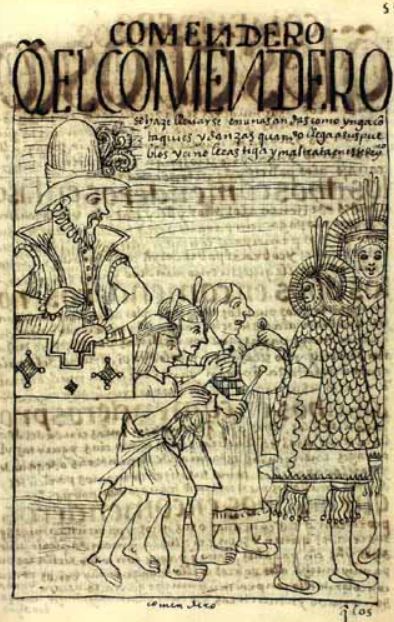 COMENDERO
Q̃ EL COMENDERO
se haze lleuarse en unas andas como ynga cō
taquies y danzas quando llega a sus pue
blos y cino le castiga y maltrata en este rreyno
comendero
q̃ los